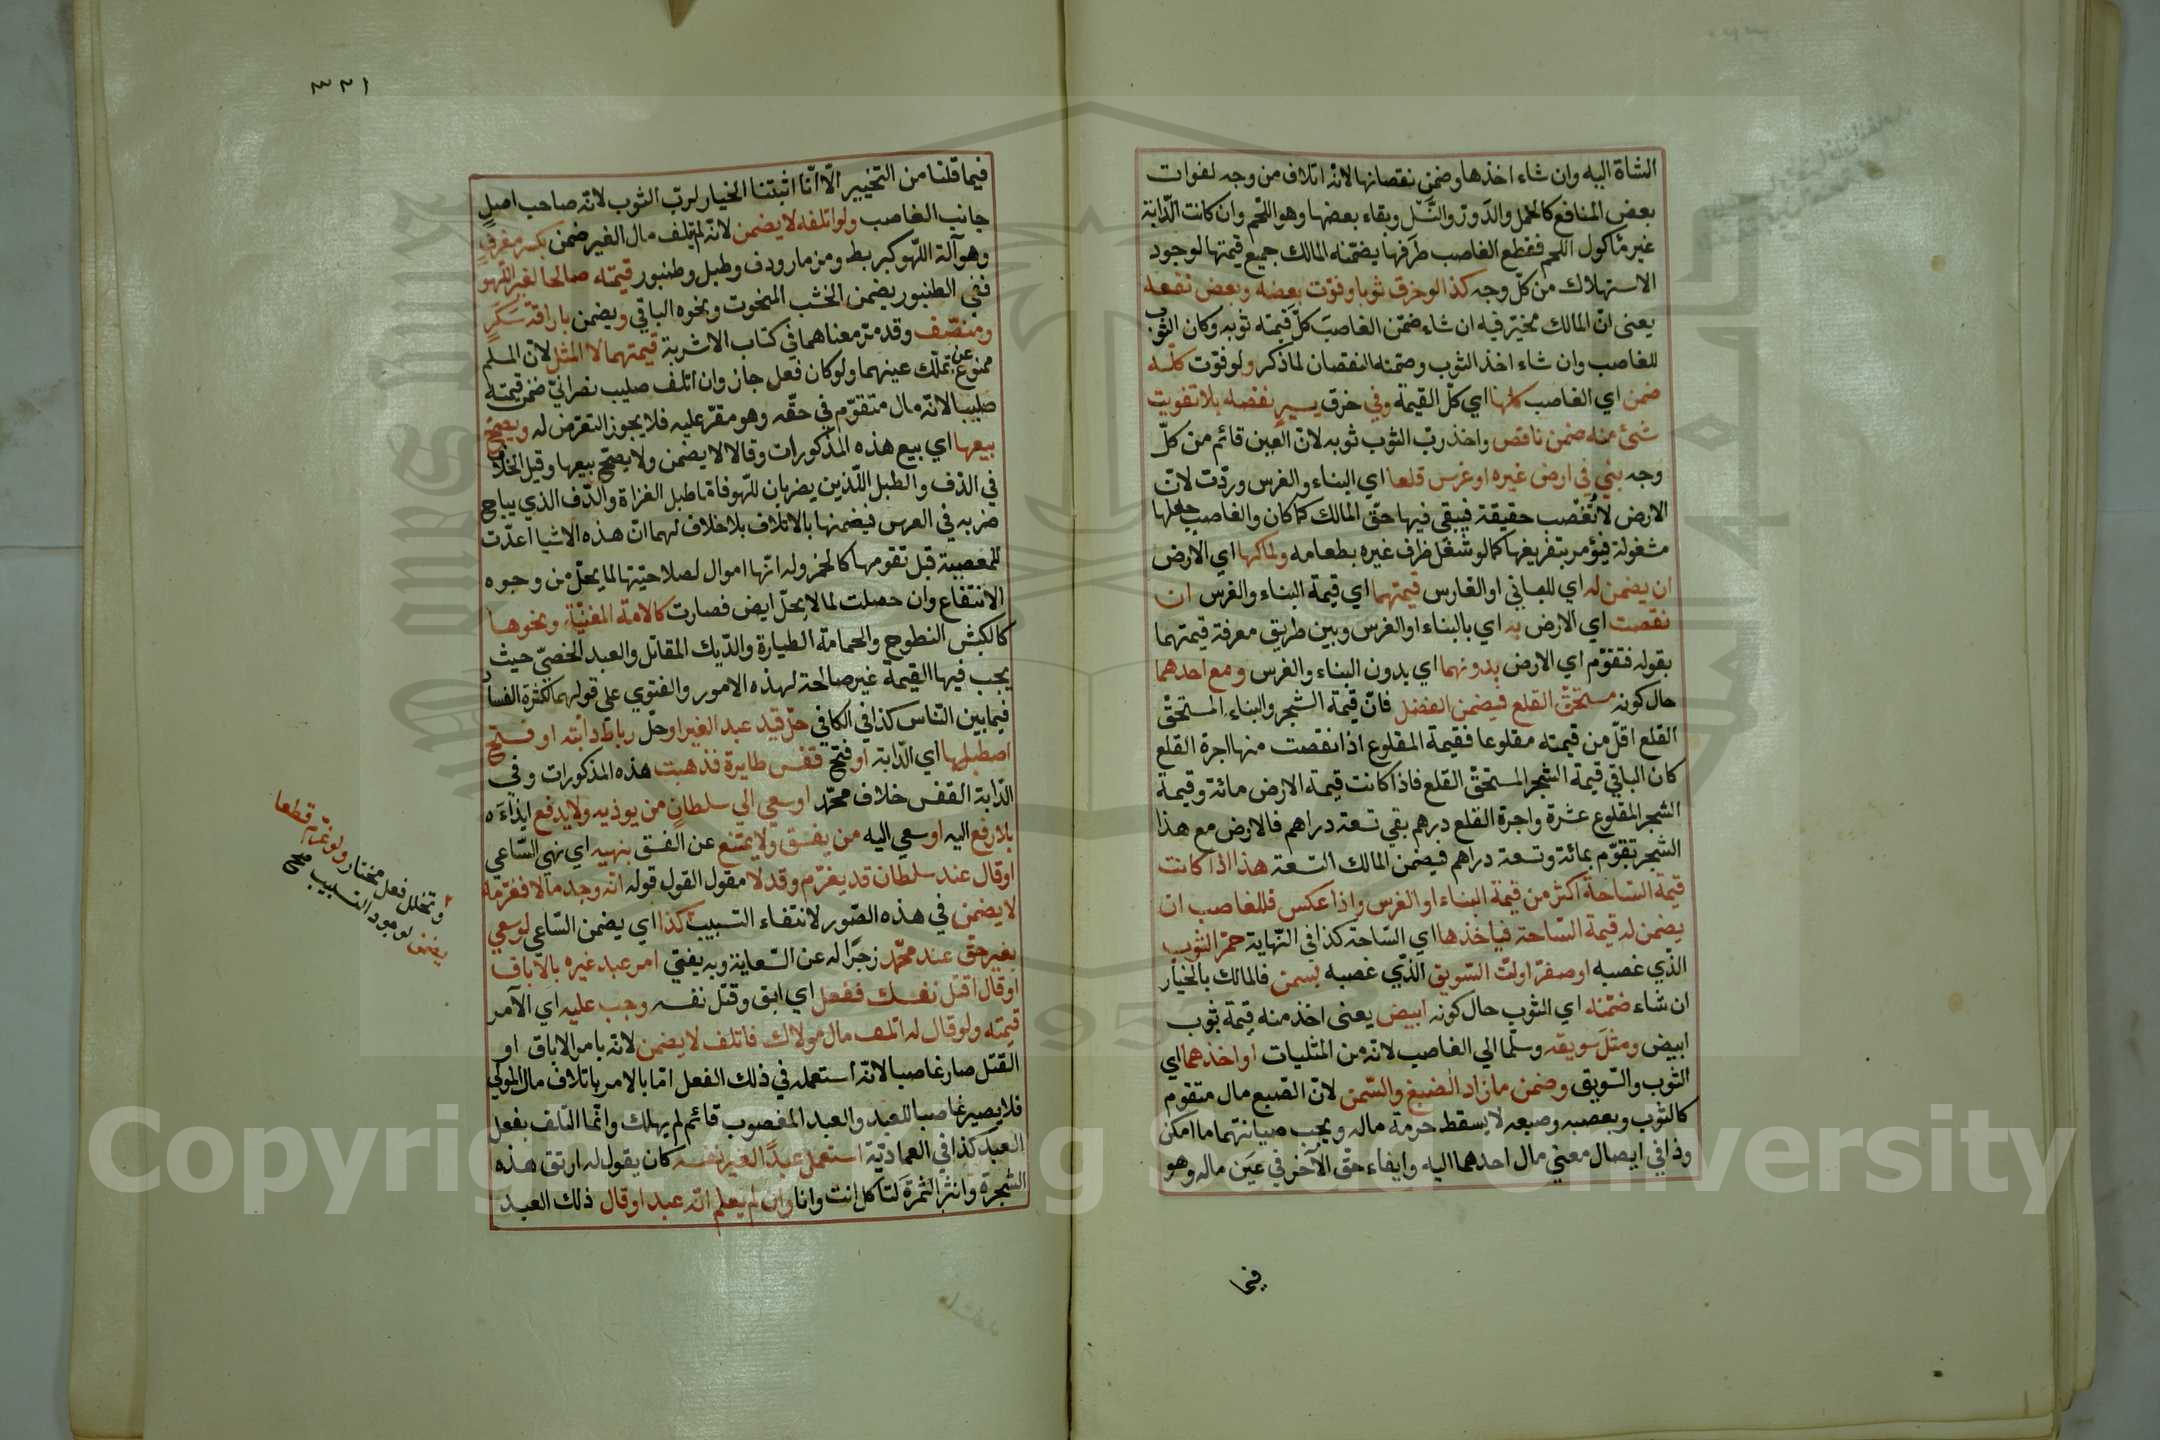 الشاة اليه وان شاء اخذها وضمن نقصانها لانه اتلاف من وجه لفوات
بعض المنافع كالحمل والدر والنسل وبقاء بعضها وهو اللحم وان كانت الدابة
غير مأكول اللحم فقطع الغاصب طرفها يضمنه المالك جميع قيمتها لوجود
الاستهلاك من كل وجه كذا لو خرق ثوبا وفوت بعضه وبعض نفعه
يعنى ان المالك مخير فيه ان شاء ضمن الغاصب كل قيمة ثوبه وكان الثوب
للغاصب وان شاء اخذ الثوب وضمنه النقصان لما ذكر ولو فوت كله
ضمن اي الغاصب كلها اي كل القيمة وفي خرق يسير نقصه بلا تفويت
شئ منه ضمن ناقص واخذ رب الثوب ثوبه لان العين قائم من كل
وجه بنى في ارض غيره او غرس قلعا اي البناء والغرس وردت لان
الارض لا تغصب حقيقة فيبقى فيها حق المالك كما كان والغاصب جعلها
مشغولة فيؤمر بتفريغها كما لو شغل ظرف غيره بطعامه ولمالكها اي الارض
ان يضمن له اي للباني او الغارس قيمتهما اي قيمة البناء والغرس ان
نقصت اي الارض به اي بالبناء او الغرس وبين طريق معرفة قيمتهما
بقوله فتقوم اي الارض بدونهما اي بدون البناء والغرس ومع احدهما
حال كونه مستحق القلع فيضمن الفضل فان قيمة الشجر والبناء المستحق
القلع اقل من قيمته مقلوعا فقيمة المقلوع اذا نقصت منها اجرة القلع
كان الباقي قيمة الشجر المستحق القلع فاذا كانت قيمة الارض مائة وقيمة
الشجر المقلوع عشرة واجرة القلع درهم بقي تسعة دراهم فالارض مع هذا
الشجر تقوم بمائة وتسعة دراهم فيضمن المالك التسعة هذا اذا كانت
قيمة الساحة اكثر من قيمة البناء او الغرس واذا عكس فللغاصب ان
يضمن له قيمة الساحة فيأخذها اي الساحة كذا في النهاية حمر الثوب
الذي غصبه او صفر او لت السويق الذي غصبه بسمن فالمالك بالخيار
ان شاء ضمنه اي الثوب حال كونه ابيض يعنى اخذ منه قيمة ثوب
ابيض ومثل سويقه وسلما الي الغاصب لانه من المثليات او اخذهما اي
الثوب والسويق وضمن ما زاد الصبغ والسمن لان الصبغ مال متقوم
كالثوب وبغصبه وصبغه لا يسقط حرمة ماله ويجب صيانتهما ما امكن
وذا في ايصال معنى مال احدهما اليه وايفاء حق الآخر في عين ماله وهو
فيما
٣٢١
فيما قلنا من التخيير الا انا اثبتنا الخيار لرب الثوب لانه صاحب اصل
جانب الغاصب ولو اتلفه لا يضمن لانه لم يتلف مال الغير ضمن بكسر معزف
وهو آلة اللهو كبربط ومزمار ودف وطبل وطنبور قيمته صالحا لغير اللهو
ففي الطنبور يضمن الخشب المنحوت ونحوه الباقي ويضمن باراقة سكر
ومنصف وقد مر معناهما في كتاب الاشربة قيمتهما لا المثل لان المسلم
ممنوع عن تملك عينهما ولو كان فعل جاز وان اتلف صليب نصراني ضمن قيمته
صليبا لانه مال متقوم في حقه وهو مقر عليه فلا يجوز التعرض له ويصح
بيعها اي بيع هذه المذكورات وقالا لا يضمن ولا يصح بيعها وقيل الخلاف
في الدف والطبل اللذين يضربان للهو فاما طبل الغزاة والدف الذي يباح
ضربه في العرس فيضمنها بالاتلاف بلا خلاف لهما ان هذه الاشيا اعدت
للمعصية قبل تقومها كالخمر وله انها اموال لصلاحيتها لما يحل من وجوه
الانتفاع وان حصلت لما لا يحل ايض فصارت كالامة المغنية ونحوها
كالكبش النطوح والحمامة الطيارة والديك المقاتل والعبد الخصي حيث
يجب فيها القيمة غير صالحة لهذه الامور والفتوي على قولهما لكثرة الفساد
فيما بين الناس كذا في الكافي حل قيد عبد الغير او حل رباط دابته او فتح
اصطبلها اي الدابة او فتح قفس طايرة فذهبت هذه المذكورات وفي
الدابة القفس خلاف محمد او سعي الي سلطان من يوذيه ولا يدفع ايذاءه
بلا رفع اليه او سعي اليه من يفسق ولا يمتنع عن الفسق بنهيه اي نهي الساعي
او قال عند سلطان قد يغرم وقد لا مقول القول قوله انه وجد مالا فغرمه
لا يضمن في هذه الصور لانتفاء التسبيب كذا اي يضمن الساعي لو سعي
بغير حق عند محمد زجرا له عن السعاية وبه يفتي امر عبد غيره بالاباق
او قال اقتل نفسك ففعل اي ابق وقتل نفسه وجب عليه اي الآمر
قيمته ولو قال له اتلف مال مولاك فاتلف لا يضمن لانه بامر الاباق او
القتل صار غاصبا لانه استعمله في ذلك الفعل اما بالامر باتلاف مال المولى
فلا يصير غاصبا للعبد والعبد المغصوب قائم لم يهلك وانما التلف بفعل
العبد كذا في العمادية استعمل عبد الغير نفسه كان يقول له ارتق هذه
الشجرة وانثر الثمرة لتأكل انت وانا وان لم يعلم انه عبد او قال ذلك العبد
وتخلل فعل مختار ولو غرم قطعا
يضمن لوجود التسبيب صح